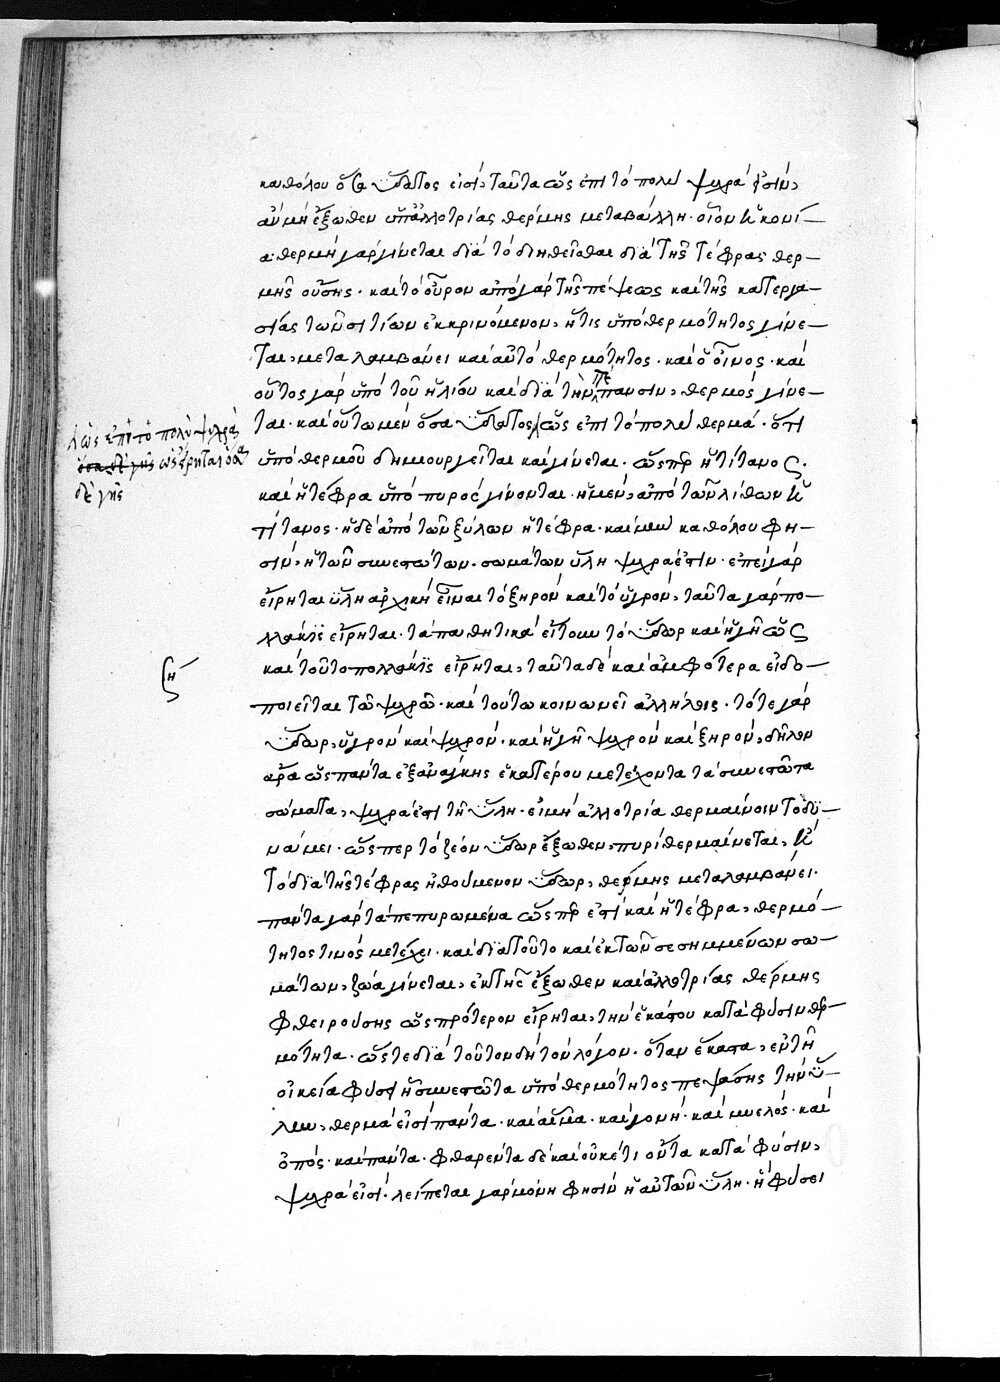 καθόλου ὅσα ὕδατος εἰσί, ταῦτα ὡς ἐπὶ τὸ πολὺ ψυχρά ἐστιν,
ἂν μὴ ἔξωθεν ὑπ' ἀλλοτρίας θέρμης μεταβάλλη· οἷον ἡ κονί-
α· θερμὴ γὰρ γίνεται διὰ τὸ διηθεῖσθαι διὰ τῆς τέφρας θερ-
μῆς οὔσης· καὶ τὸ οὖρον ἀπὸ γὰρ τῆς πέψεως καὶ τῆς κατεργα-
σίας τῶν σιτίων ἐκκρινόμενον, ἥτις ὑπὸ θερμότητος γίνε-
ται, μεταλαμβάνει καὶ αὐτὸ θερμότητος· καὶ ὁ οἶνος· καὶ
οὗτος γὰρ ὑπὸ τοῦ ἡλίου καὶ διὰ τὴν πέπανσιν, θερμὸς γίνε-
ται· καὶ οὕτω μὲν ὅσα ὕδατος ὡς ἐπὶ τὸ πολὺ θερμά· ὅτι
ὡς ἐπὶ τὸ πολὺ ψυχρὰ
ὅσα δὲ γῆς ὡς εἴρηται ὅσα
δὲ γῆς
ὑπὸ θερμοῦ δημιουργεῖται καὶ γίνεται· ὥσπερ ἡ τίτανος·
καὶ ἡ τέφρα ὑπὸ πυρὸς γίνονται· ἡ μὲν, ἀπὸ τῶν λίθων ἡ
τίτανος· ἡ δὲ ἀπὸ τῶν ξύλων ἡ τέφρα· καὶ νῦν καθόλου φη-
σιν, ἡ τῶν συνεστώτων σωμάτων ὕλη ψυχρά ἐστιν· ἐπεὶ γὰρ
εἴρηται ὕλη ἀρχικὴ εἶναι τὸ ξηρὸν καὶ τὸ ὑγρόν, ταῦτα γὰρ πο-
λλάκις εἴρηται· τὰ παθητικὰ εἴτουν τὸ ὕδωρ καὶ ἡ γῆ ὡς
καὶ τοῦτο πολλάκις εἴρηται, ταῦτα δὲ καὶ ἀμφότερα εἰδο-
ποιεῖται τῷ ψυχρῷ· καὶ τούτω κοινωνεῖ ἀλλήλοις· τό τε γὰρ
ση
ὕδωρ, ὑγρὸν καὶ ψυχρόν· καὶ ἡ γῆ ψυχρὸν καὶ ξηρόν, δῆλον
ἄρα ὡς πάντα ἐξ ἀνάγκης ἑκατέρου μετέχοντα τὰ συνεστῶτα
σώματα, ψυχρά ἐστι τῇ ὕλη· εἰ μὴ ἀλλοτρία θερμαίνοιντο δυ-
νάμει· ὥσπερ τὸ ζέον ὕδωρ ἔξωθεν, πυρὶ θερμαίνεται, καὶ
τὸ διὰ τῆς τέφρας ἠθούμενον ὕδωρ, θέρμης μεταλαμβάνει·
πάντα γὰρ τὰ πεπυρωμένα ὥσπερ ἐστὶ καὶ ἡ τέφρα, θερμό-
τητος τινὸς μετέχει· καὶ διὰ τοῦτο καὶ ἐκ τῶν σεσημμένων σω-
μάτων, ζῶα γίνεται, ἐκ τῆς ἔξωθεν καὶ ἀλλοτρίας θέρμης
φθειρούσης ὡς πρότερον εἴρηται, τὴν ἑκάστου κατὰ φύσιν θερ-
μότητα· ὥστε διὰ τοῦτον δὴ τὸν λόγον· ὅταν ἕκαστα, ἐν τῇ
οἰκεία φύσει ἦ συνεστῶτα ὑπὸ θερμότητος πεψάσης τὴν ὕ-
λην, θερμά εἰσι πάντα· καὶ αἷμα· καὶ γονή· καὶ μυελός· καὶ
ὀπός· καὶ πάντα· φθαρέντα δὲ καὶ οὐκέτι ὄντα κατὰ φύσιν,
ψυχρά εἰσι· λείπεται γὰρ μόνη φησὶν ἡ αὐτῶν ὕλη· ἡ φύσει